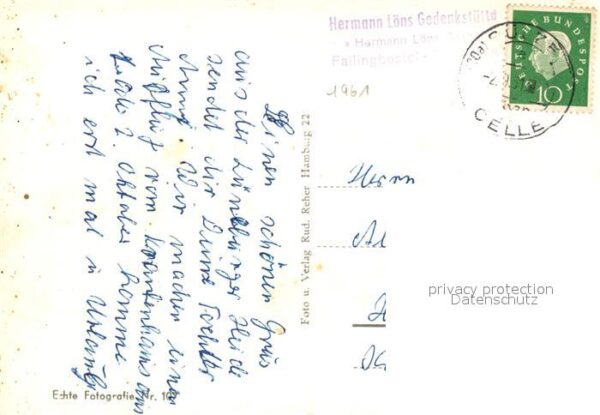 Einen schönen Gruß
aus der Lüneburger Heide
sendet dir Deine Tochter
Wir machen einen
Ausflug vom Krankenhaus aus
2. Oktober komme
ich erst mal in Urlaub
Foto u. Verlag Rud. Reher Hamburg 22
Echte Fotografie Nr. 10
Hermann Löns Gedenkstätte
Hermann Löns
Fallingbostel
1961
DEUTSCHE BUNDESPOST
10
CELLE
Herrn
privacy protection
Datenschutz